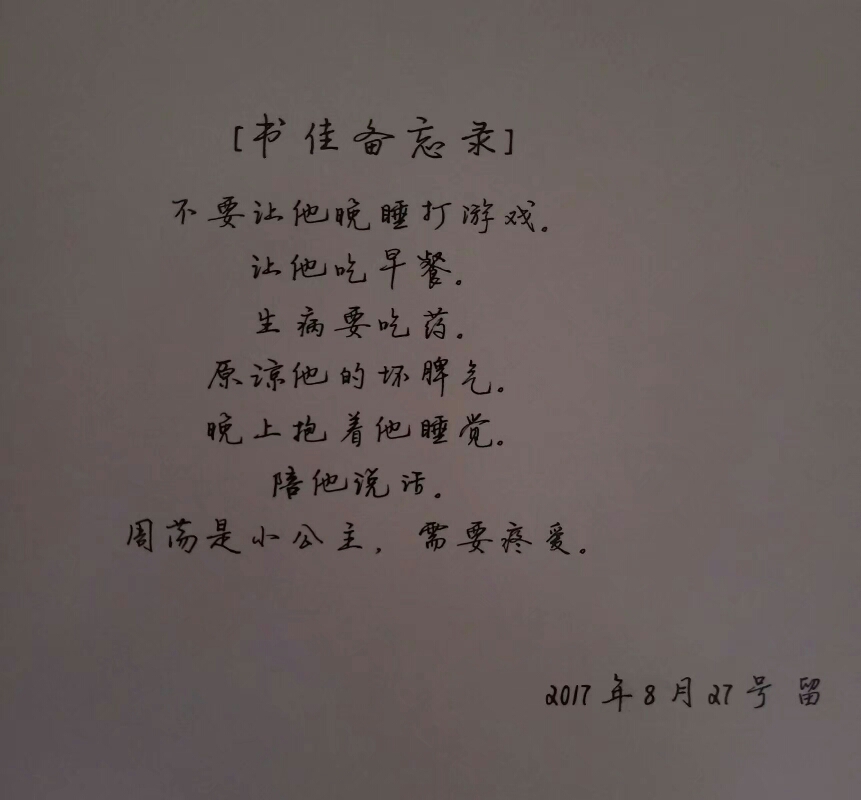 [书佳备忘录]
不要让他晚睡打游戏。
让他吃早餐。
生病要吃药。
原谅他的坏脾气。
晚上抱着他睡觉。
陪他说话。
周荡是小公主，需要疼爱。
2017年8月27号 留